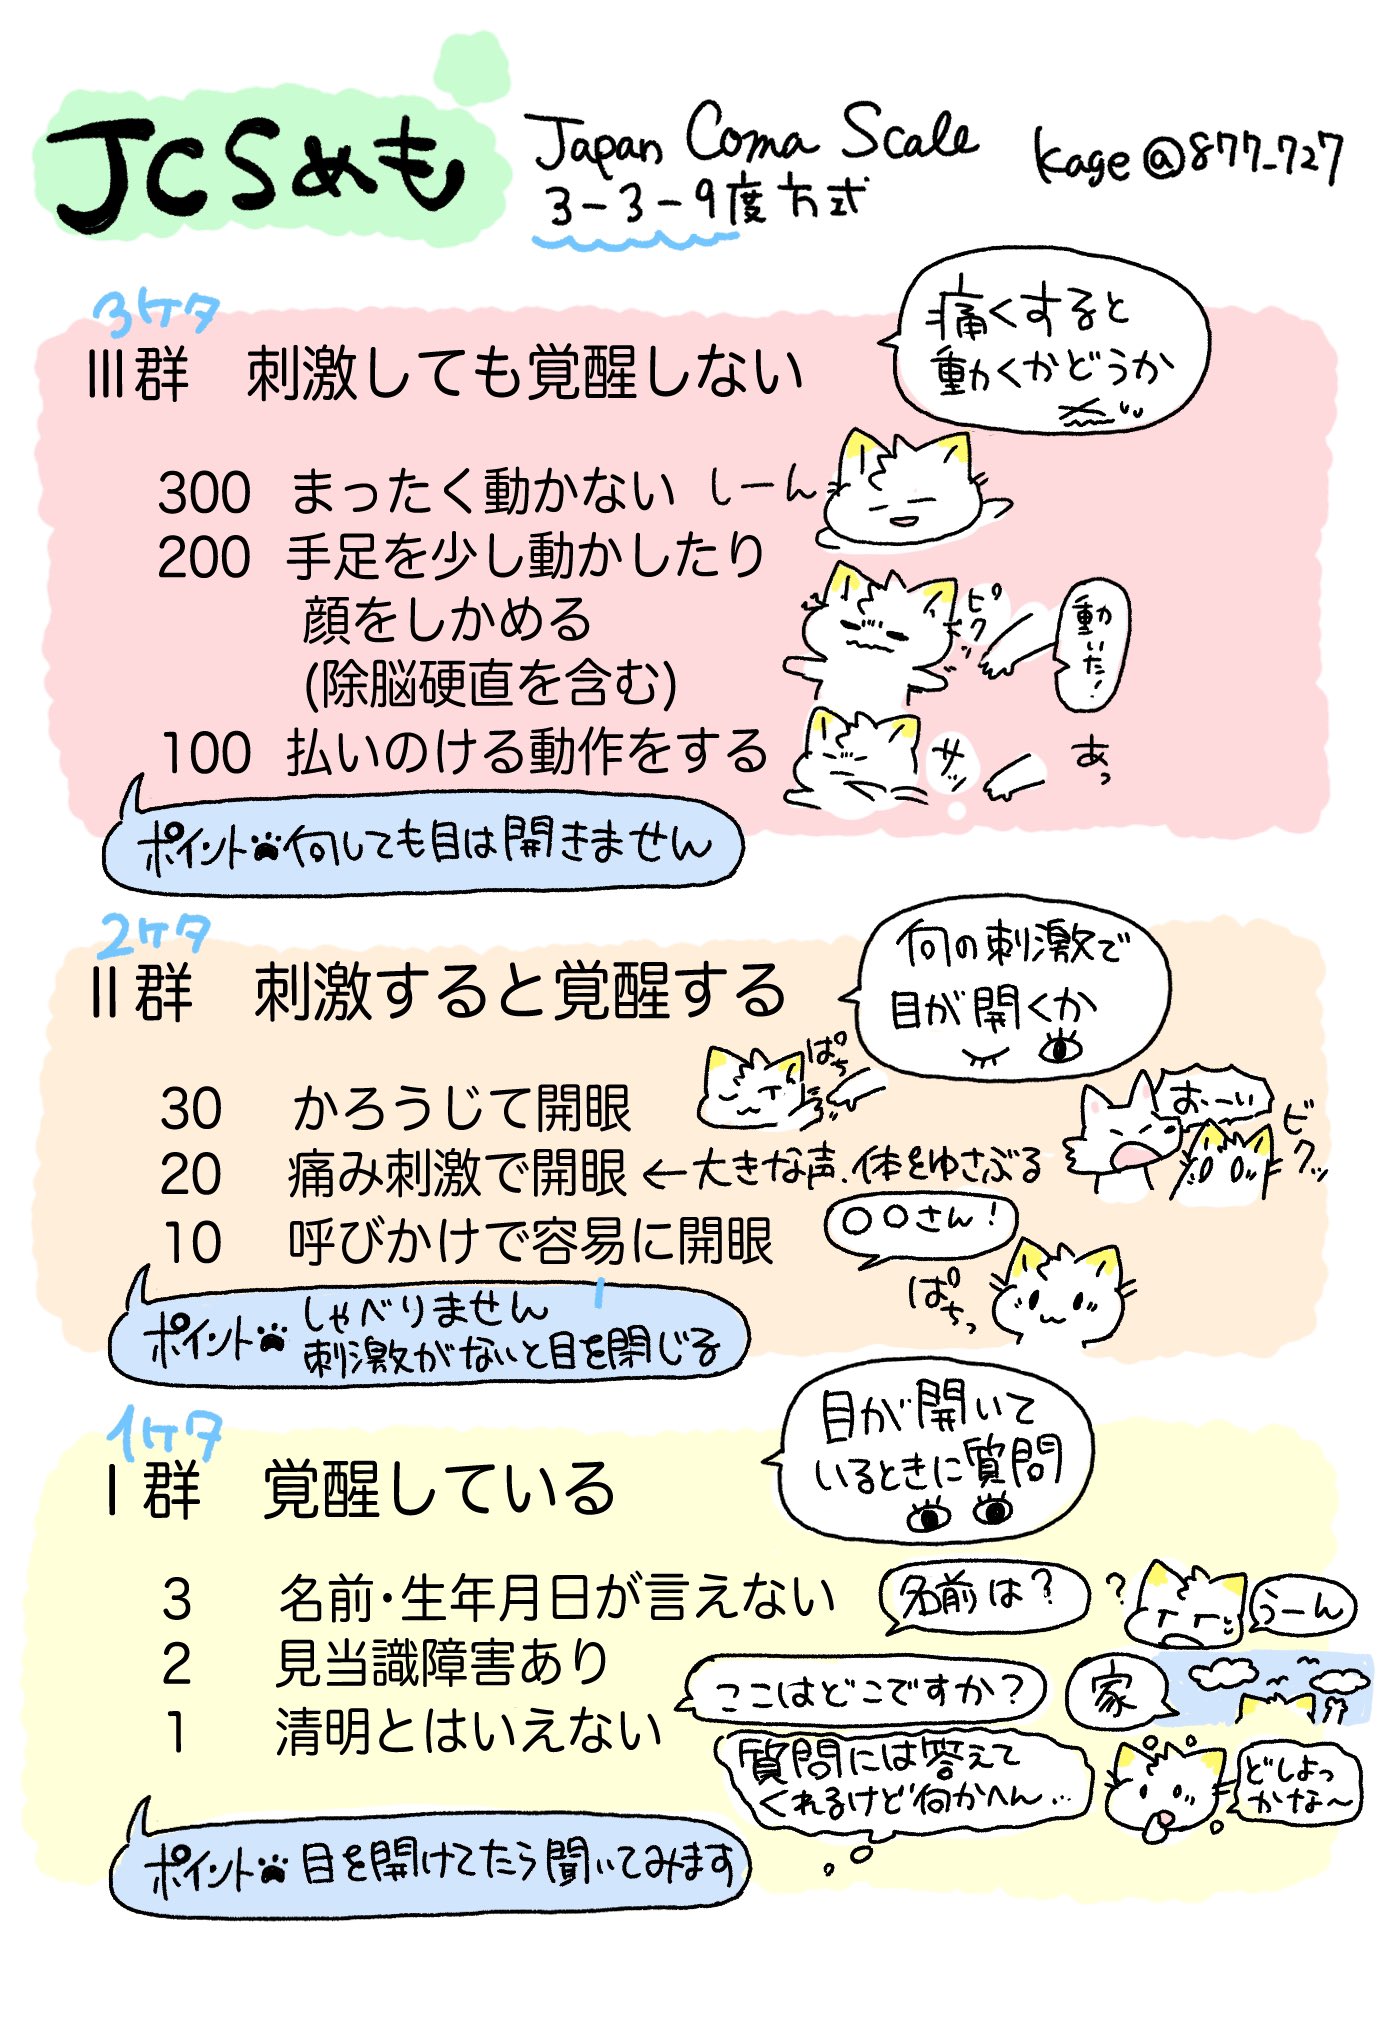 JCSめも
Japan Coma Scale
3-3-9度方式
kage@877_727
3ケタ
III群 刺激しても覚醒しない
痛くすると
動くかどうか
300 まったく動かない
しーん
200 手足を少し動かしたり
顔をしかめる
(除脳硬直を含む)
ピク
動いた!
100 払いのける動作をする
サッ
あっ
ポイント 何しても目は開きません
2ケタ
II群 刺激すると覚醒する
何の刺激で
目が開くか
30 かろうじて開眼
ぱち
20 痛み刺激で開眼 ←大きな声、体をゆさぶる
おーい
ビクッ
10 呼びかけで容易に開眼
〇〇さん!
ぱちっ
ポイント しゃべりません
刺激がないと目を閉じる
1ケタ
I群 覚醒している
目が開いて
いるときに質問
3 名前・生年月日が言えない
名前は?
?
うーん
2 見当識障害あり
ここはどこですか?
家
1 清明とはいえない
質問には答えて
くれるけど何かへん…
どしよっ
かな〜
ポイント 目を開けてたら聞いてみます